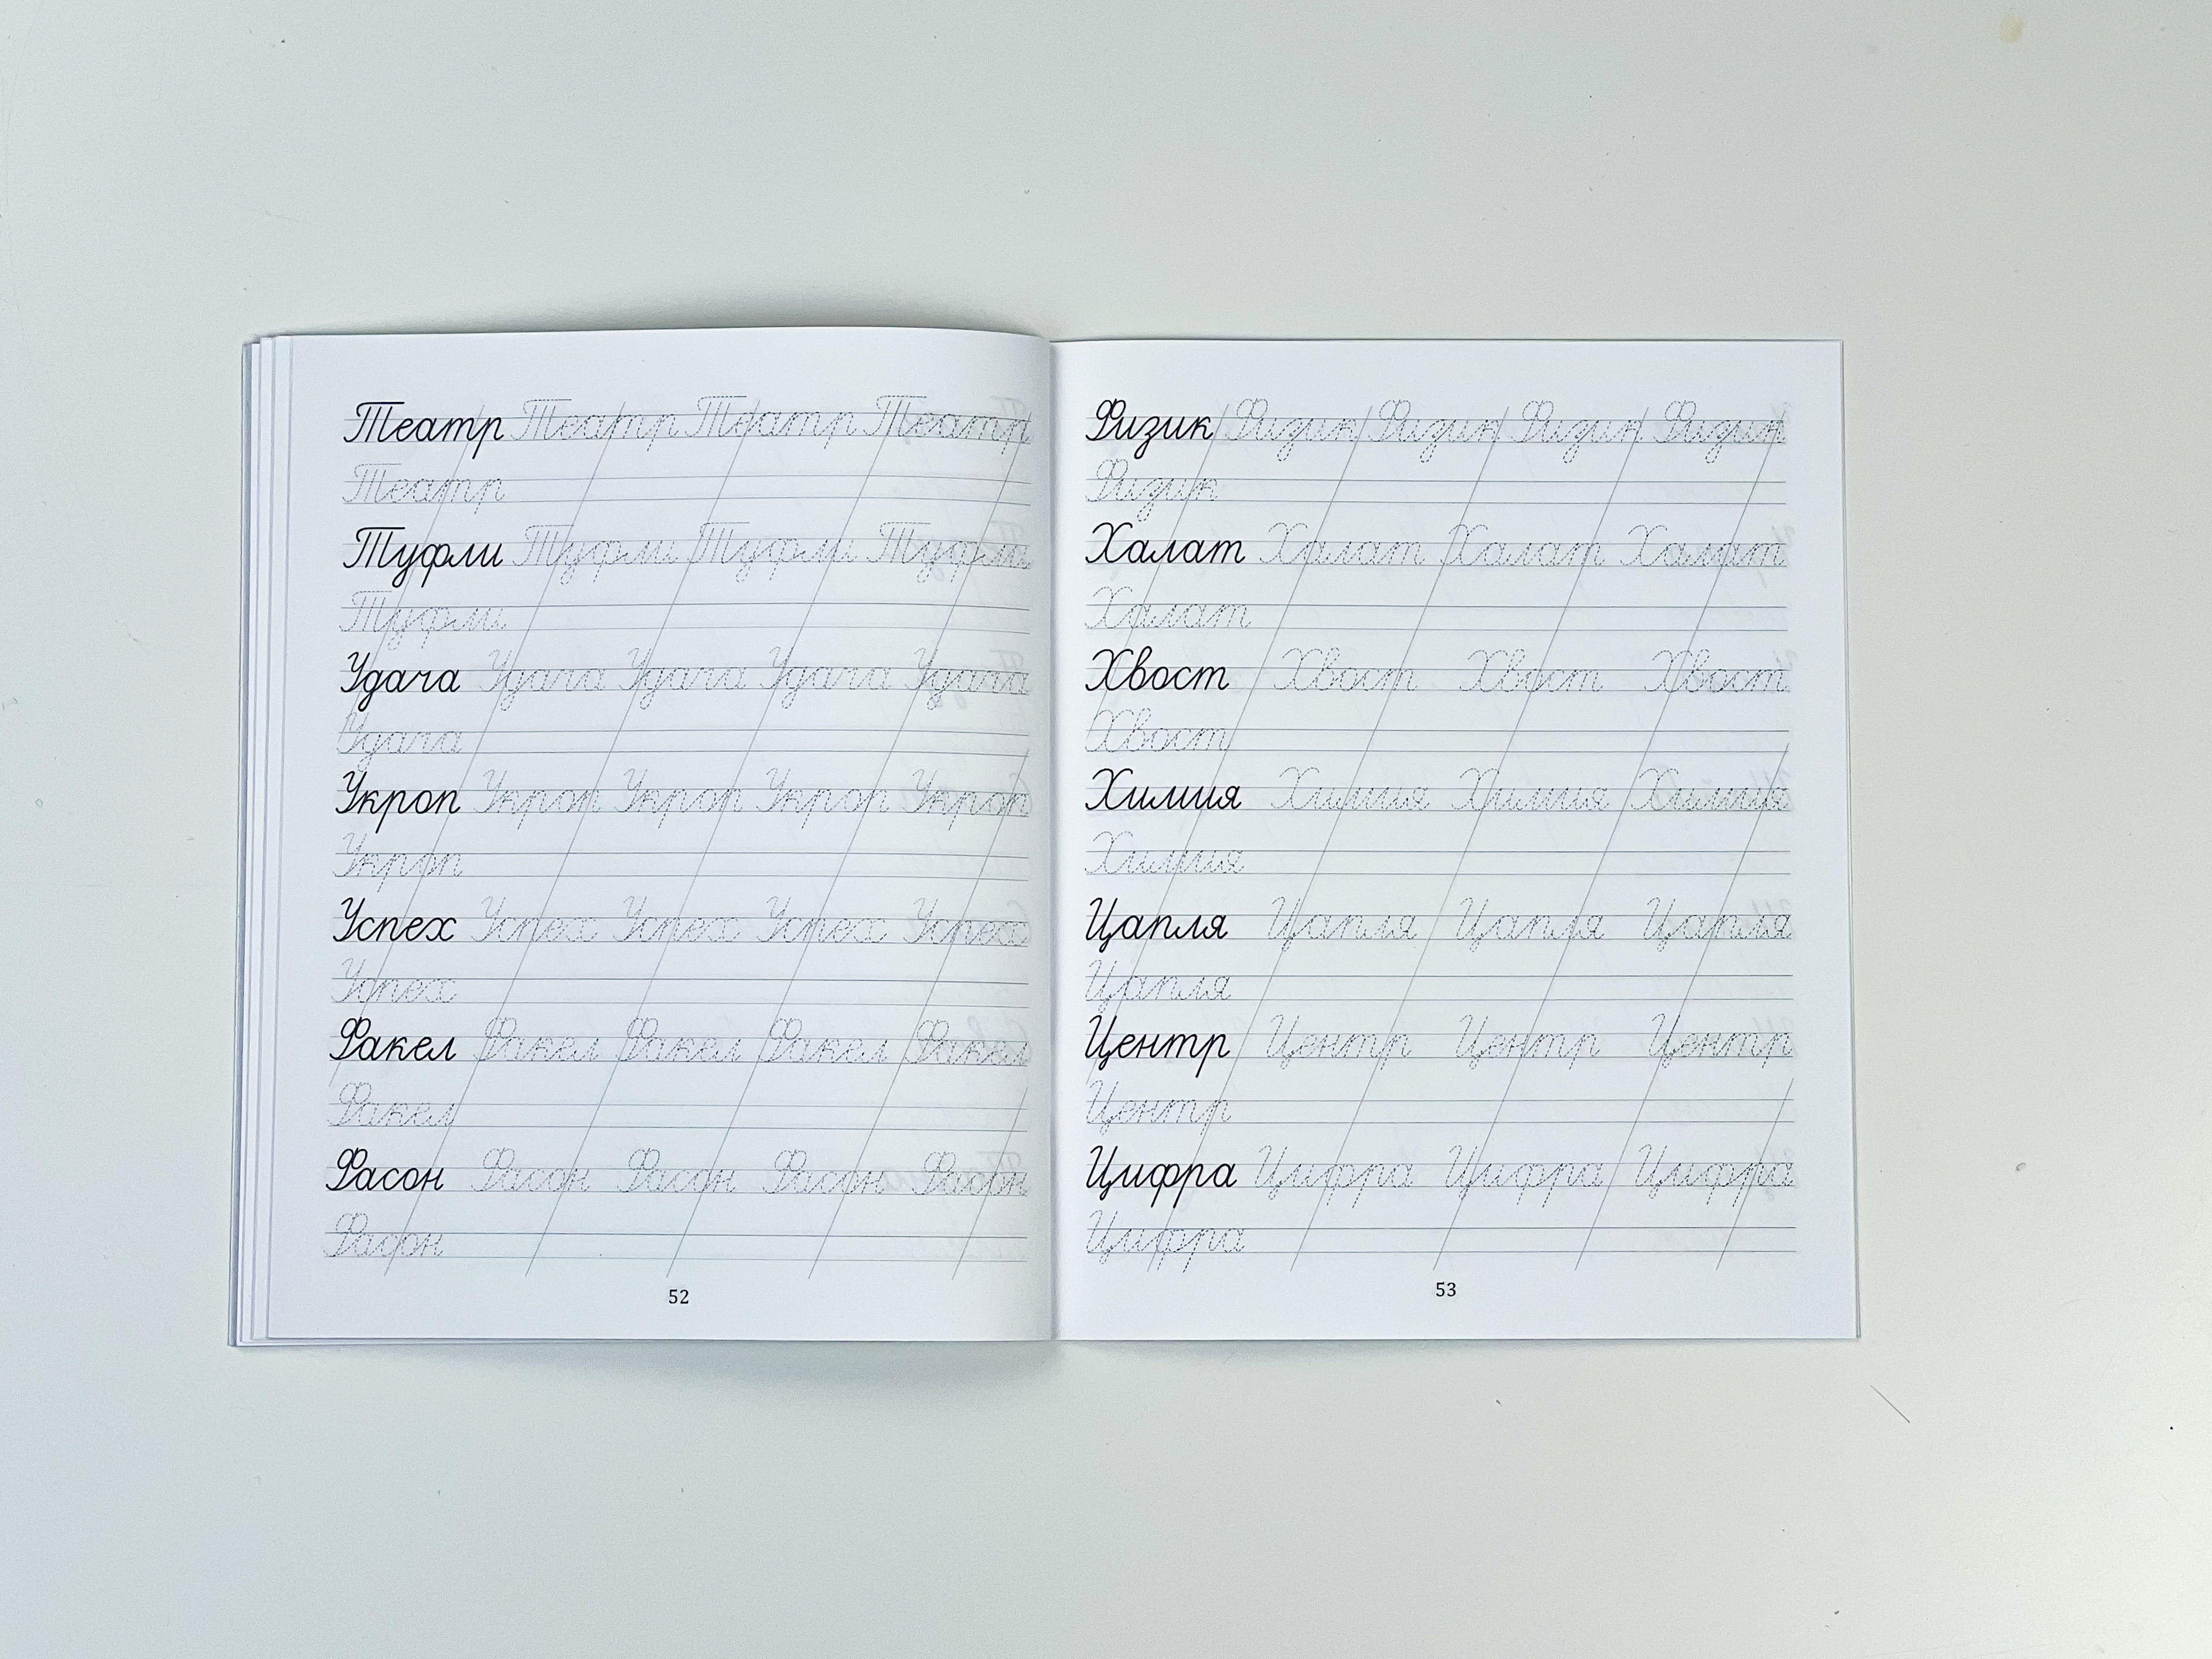 Театр Театр Театр Театр
Театр
Туфли Туфли Туфли Туфли
Туфли
Удача Удача Удача Удача Удача
Удача
Укроп Укроп Укроп Укроп Укроп
Укроп
Успех Успех Успех Успех Успех
Успех
Факел Факел Факел Факел Факел
Факел
Фасон Фасон Фасон Фасон Фасон
Фасон
52
Физик Физик Физик Физик Физик
Физик
Халат Халат Халат Халат
Халат
Хвост Хвост Хвост Хвост
Хвост
Химия Химия Химия Химия
Химия
Цапля Цапля Цапля Цапля
Цапля
Центр Центр Центр Центр
Центр
Цифра Цифра Цифра Цифра
Цифра
53